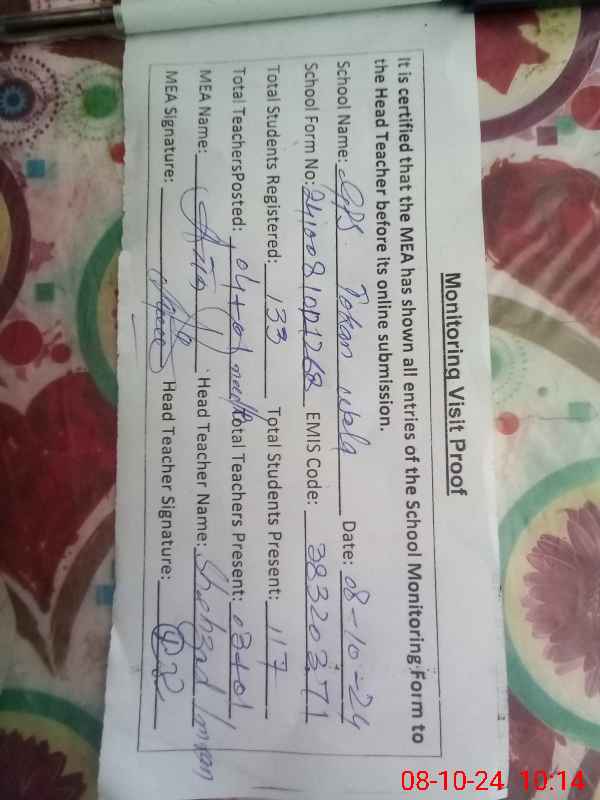 Monitoring Visit Proof
It is certified that the MEA has shown all entries of the School Monitoring Form to
the Head Teacher before its online submission.
School Name: GPS Tokan wala Date: 08-10-24
School Form No: EMIS Code: 38320371
Total Students Registered: 133 Total Students Present: 117
Total TeachersPosted: 04+01 Total Teachers Present: 03+01
MEA Name: Head Teacher Name: Shahzad Imran
MEA Signature: Head Teacher Signature:
08-10-24 10:14